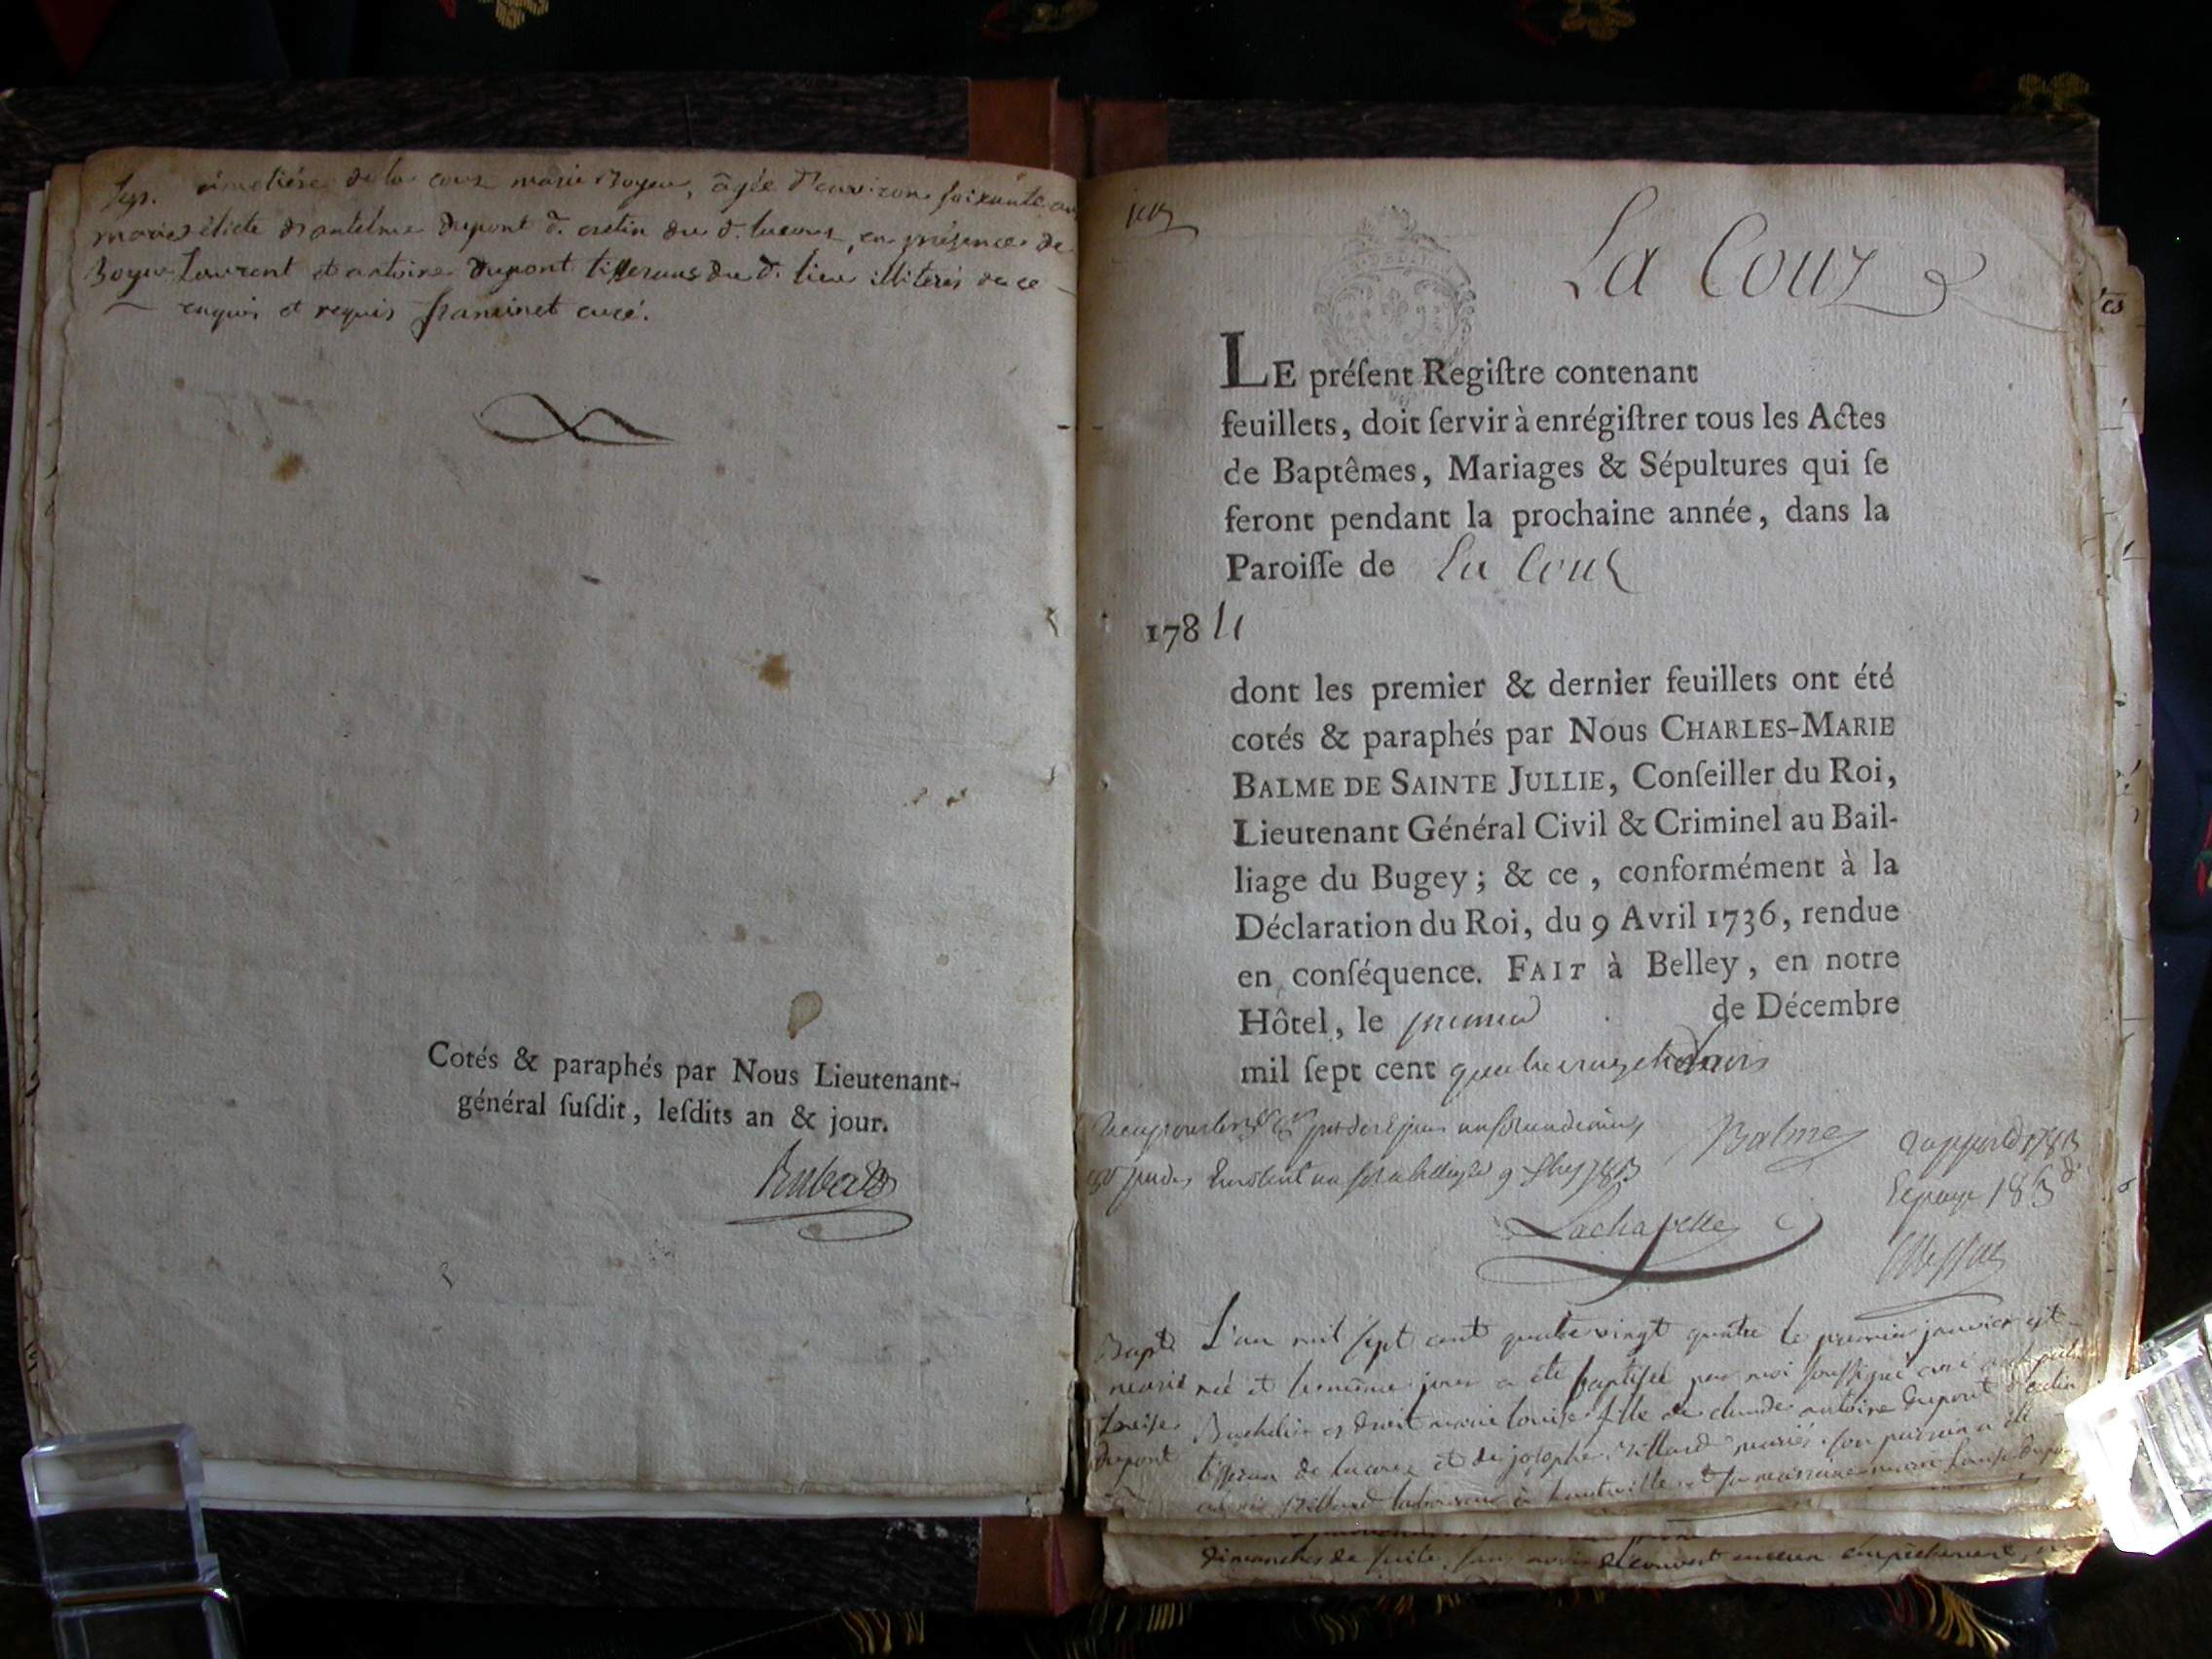 cimetière de la couz marie Boyeu, âgée d'environ soixante ans
mariee élicte d'antelme dupont d. cretin du d. lacouz, en présence de
Boyeu Laurent et antoine dupont tisserans du d. lieu illiterés de ce
enquis et requis framinet curé.
Cotés & paraphés par Nous Lieutenant-
général ſuſdit, leſdits an & jour.
Rubat
La Couz
LE préſent Regiſtre contenant
feuillets, doit ſervir à enrégiſtrer tous les Actes
de Baptêmes, Mariages & Sépultures qui ſe
feront pendant la prochaine année, dans la
Paroiſſe de La Couz
1784
dont les premier & dernier feuillets ont été
cotés & paraphés par Nous CHARLES-MARIE
BALME DE SAINTE JULLIE, Conſeiller du Roi,
Lieutenant Général Civil & Criminel au Bail-
liage du Bugey; & ce, conformément à la
Déclaration du Roi, du 9 Avril 1736, rendue
en conſéquence. FAIT à Belley, en notre
Hôtel, le premier de Décembre
mil ſept cent quatre vingt trois
Balme
Lachapelle
Bapt. L'an mil sept cent quatre vingt quatre le premier janvier est
marie née et le même jour a été baptisée par moi soussigné curé
Louise Bachelier es droit marie louise fille de claude antoine dupont d. cretin
dupont tisseran de lacouz et de josephe Billard mariés. son parrain a été
Billard laboureur à hauteville et sa marraine marie Louise dupont
dimanches de suite, sans avoir découvert aucun empêchement